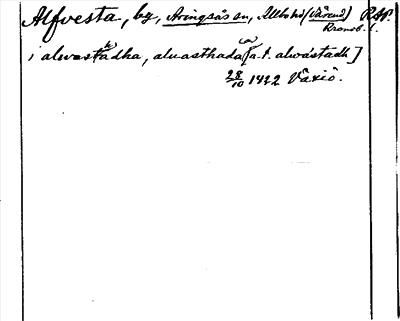 Alfvesta, by, Aringsås sn, Allbo hd (Värend) RAP.
Kronob. l.
i alwastadha, aluasthada [a.t. alwástadh]
28/10 1412 Växiö.